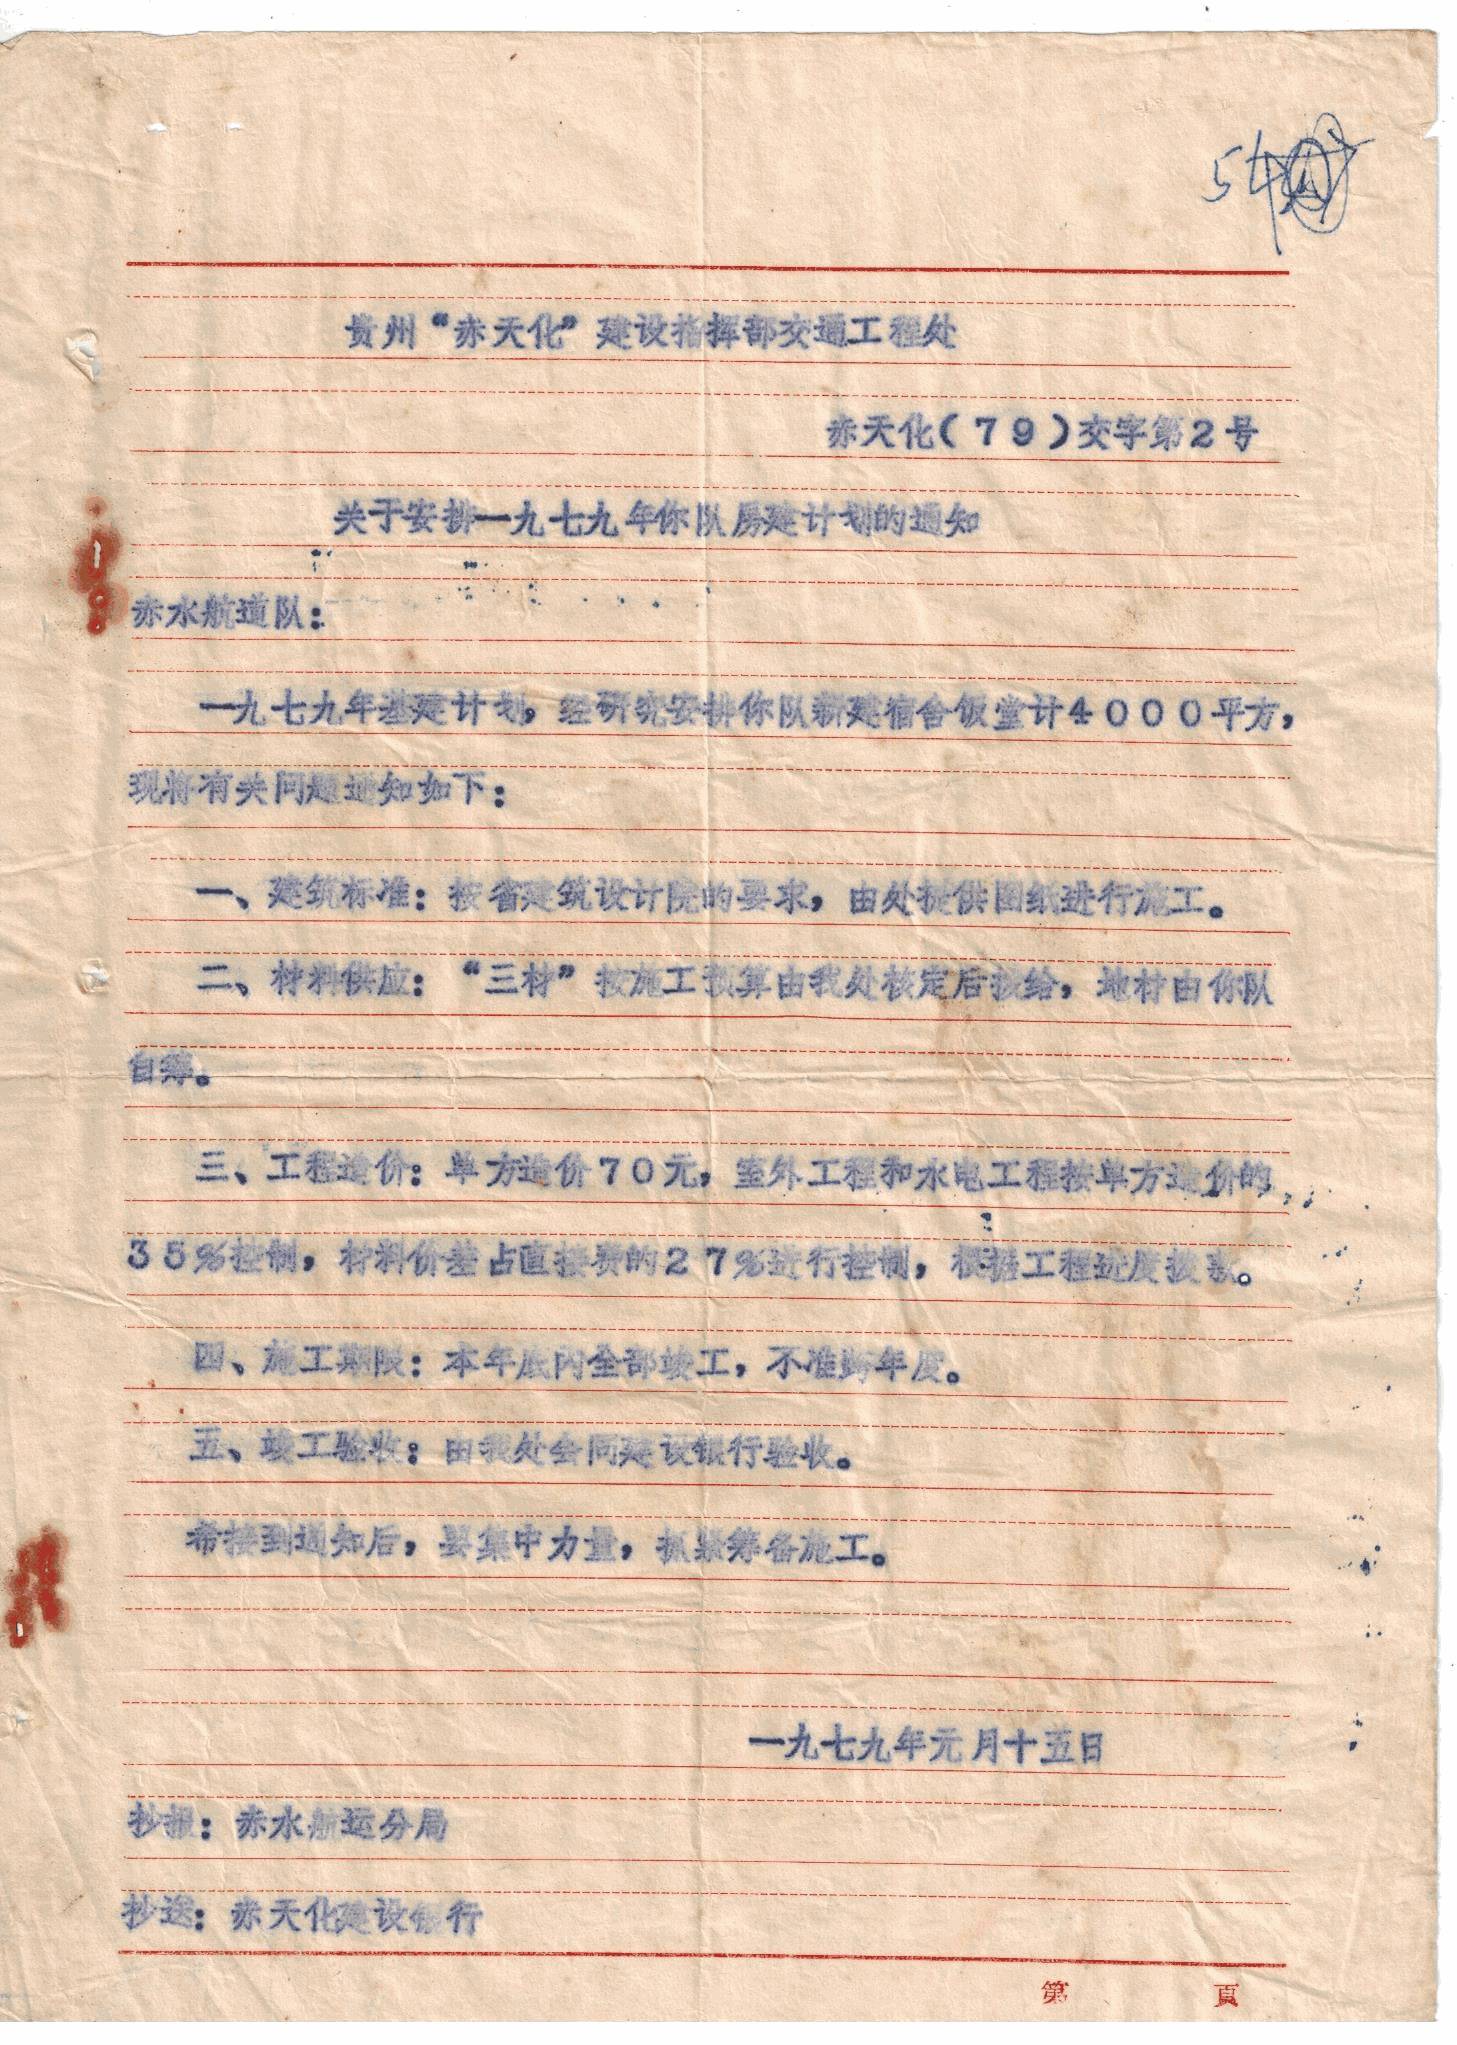 54
贵州“赤天化”建设指挥部交通工程处
赤天化（79）交字第2号
关于安排一九七九年你队房建计划的通知
赤水航道队：
一九七九年基建计划，经研究安排你队新建宿舍饭堂计4000平方，
现将有关问题通知如下：
一、建筑标准：按省建筑设计院的要求，由处提供图纸进行施工。
二、材料供应：“三材”按施工预算由我处核定后拨给，地材由你队
自筹。
三、工程造价：单方造价70元，室外工程和水电工程按单方造价的
35%控制，材料价差占直接费的27%进行控制，根据工程进度拨款。
四、施工期限：本年底内全部竣工，不准跨年度。
五、竣工验收：由我处会同建设银行验收。
希接到通知后，要集中力量，抓紧筹备施工。
一九七九年元月十五日
抄报：赤水航运分局
抄送：赤天化建设银行
第 頁